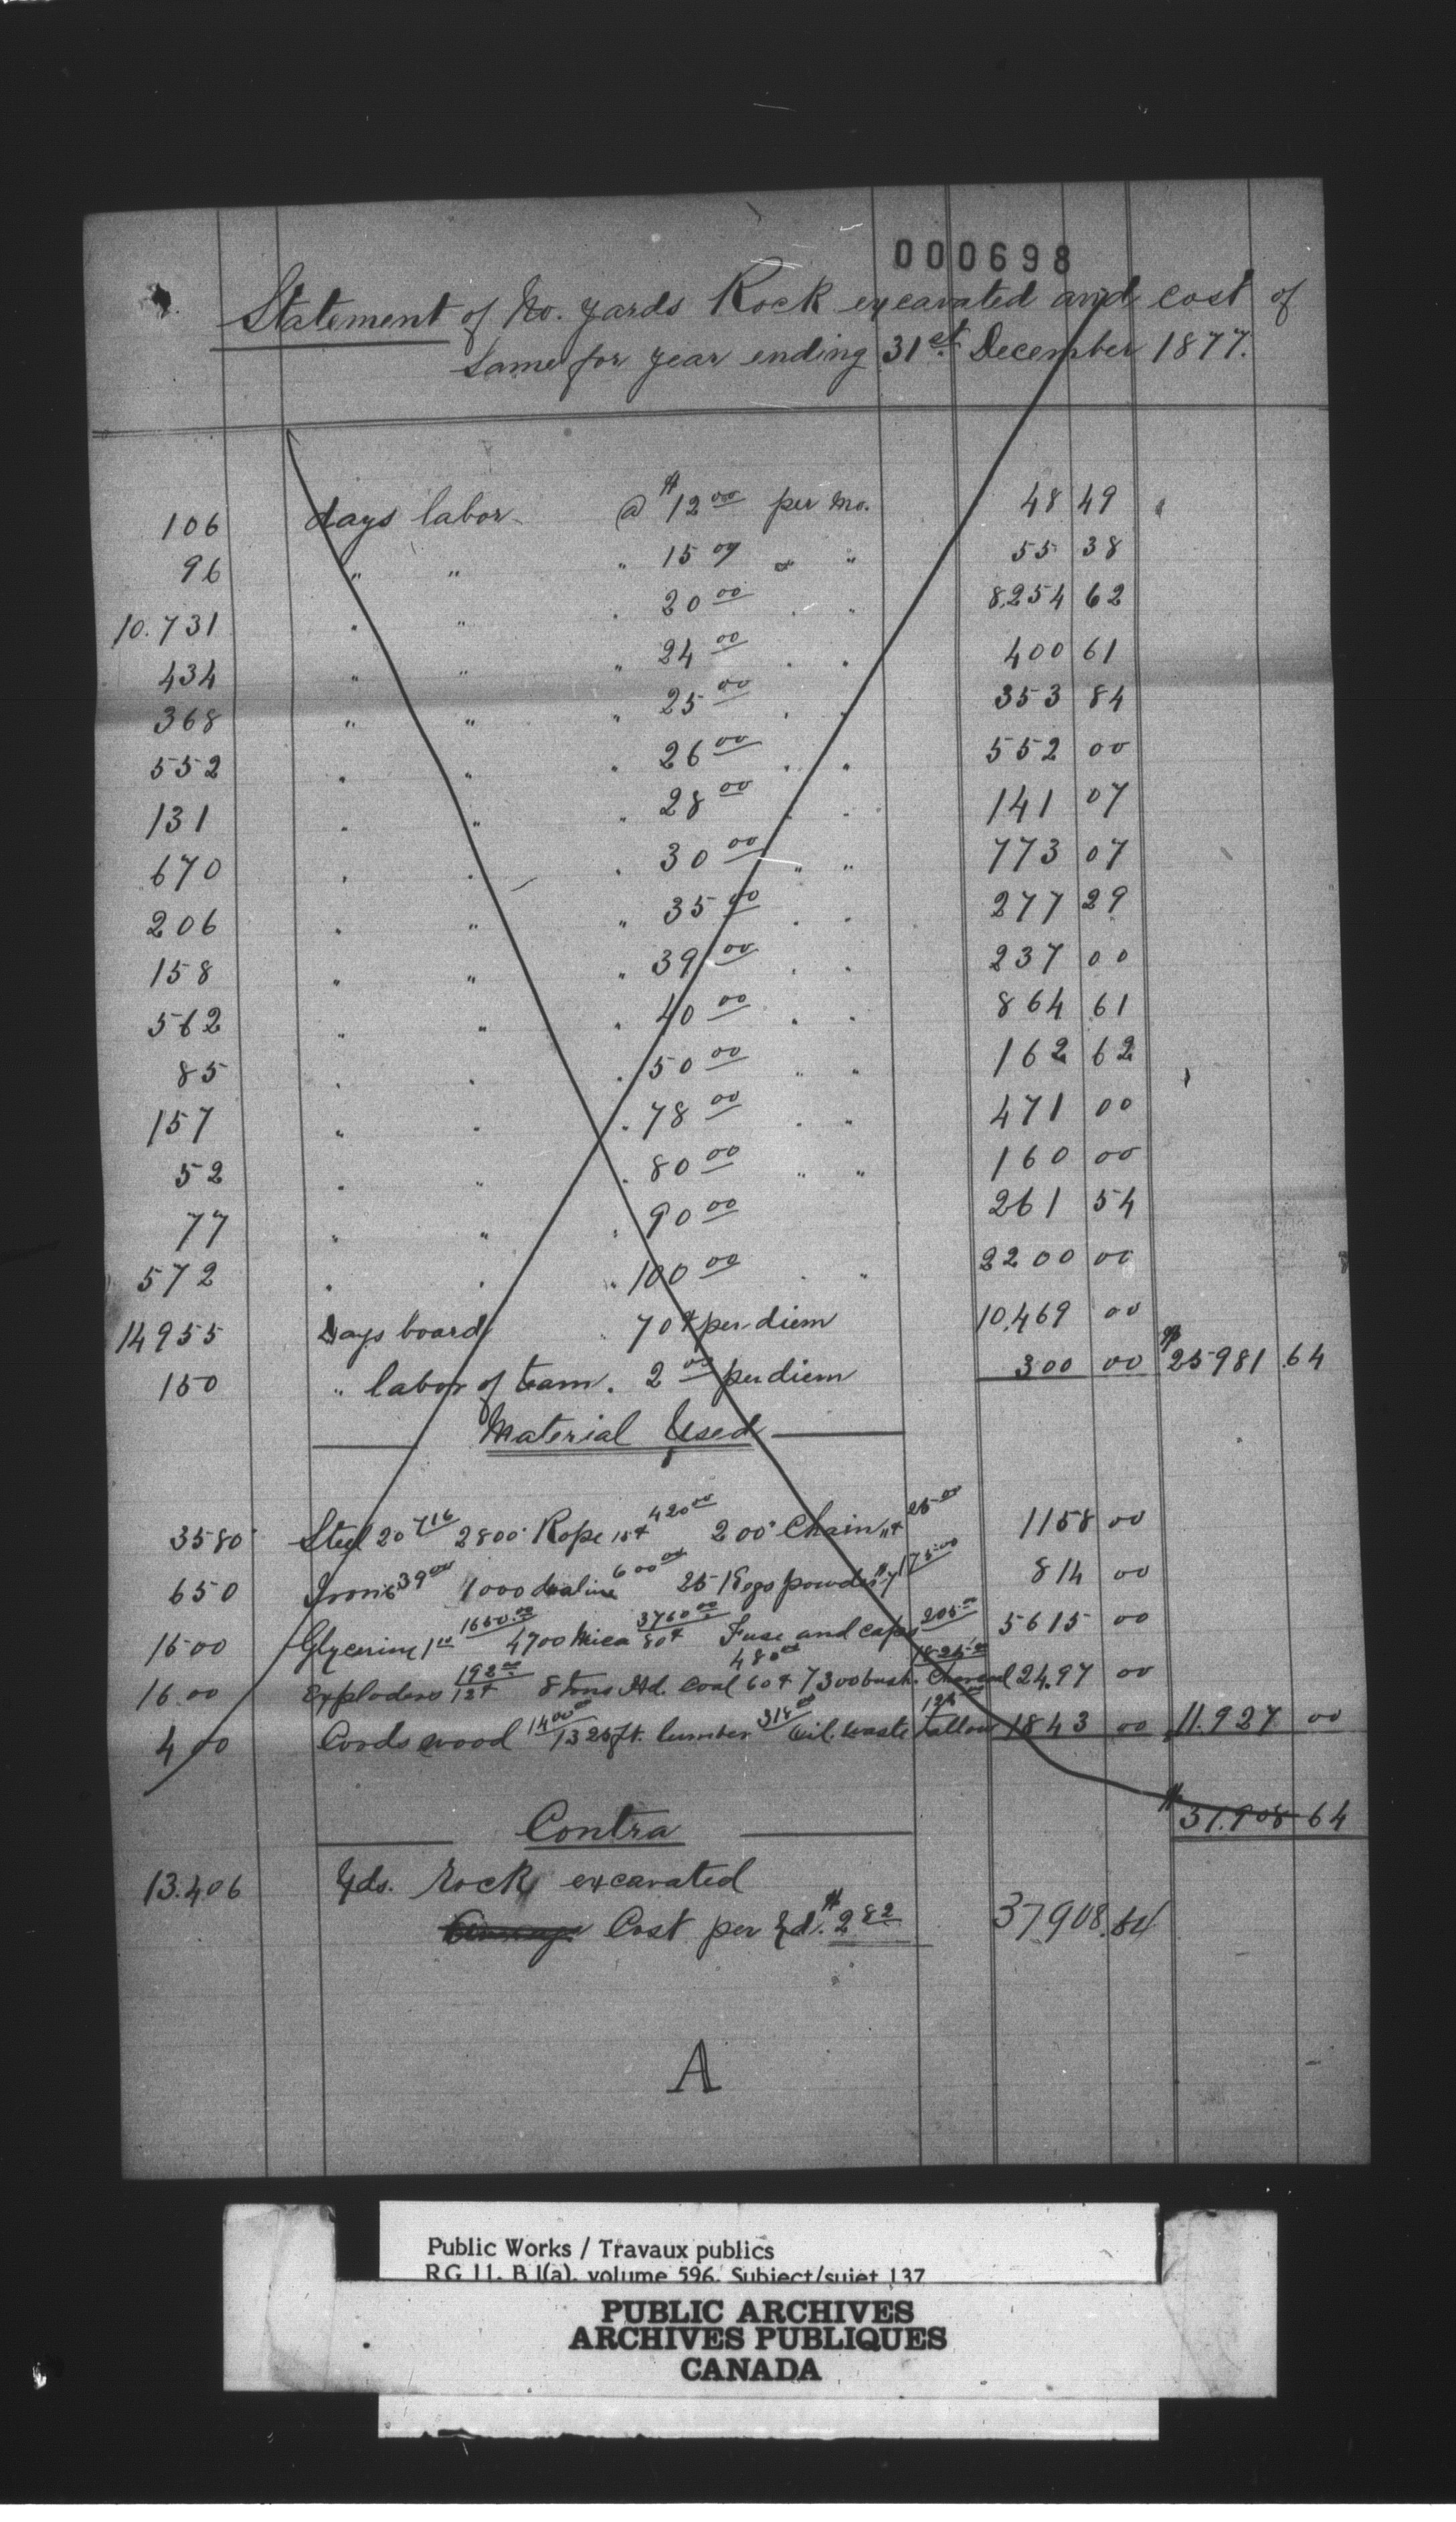 000698
Statement of No. yards Rock excavated and cost of
same for year ending 31st December 1877.
106 days labor @ $12 00 per mo. 48 49
96 " " " 15 00 " " 55 38
10.731 " " " 20 00 " " 8,254 62
434 " " " 24 00 " " 400 61
368 " " " 25 00 " " 353 84
552 " " " 26 00 " " 552 00
131 " " " 28 00 " " 141 07
670 " " " 30 00 " " 773 07
206 " " " 35 00 " " 277 29
158 " " " 39 00 " " 237 00
562 " " " 40 00 " " 864 61
85 " " " 50 00 " " 162 62
157 " " " 78 00 " " 471 00
52 " " " 80 00 " " 160 00
77 " " " 90 00 261 54
572 " " " 100 00 " " 2200 00
14955 Days board " 70¢ per diem 10,469 00
150 " labor of team . 2 00 per diem 300 00 $25981.64
Material Used
3580 Steel 20 716 2800' Rope 15¢ 420 00 200' Chain 25 00 1158 00
650 Iron 6 39 00 1000 600 00 25 Kegs powder $7 175 00 814 00
1600 Glycerine 1 00 1650.00 4700 Mica 80¢ 3760 00 Fuse and caps 205 00 5615 00
16.00 Exploders 12¢ 192 00 8 tons Hd. coal 60¢ 480 00 7300 bush. Charcoal 1825 00 24.97 00
400 Cords wood 1400 00 1325 ft. lumber 318 00 Oil. waste tallow 125 00 1843 00 11.927 00
$37.908 64
Contra
13.406 Yds. Rock excavated
Cost per Yd. $2 82 37908.64
A
Public Works / Travaux publics
RG 11, B 1(a), volume 596, Subject/sujet 137
PUBLIC ARCHIVES
ARCHIVES PUBLIQUES
CANADA